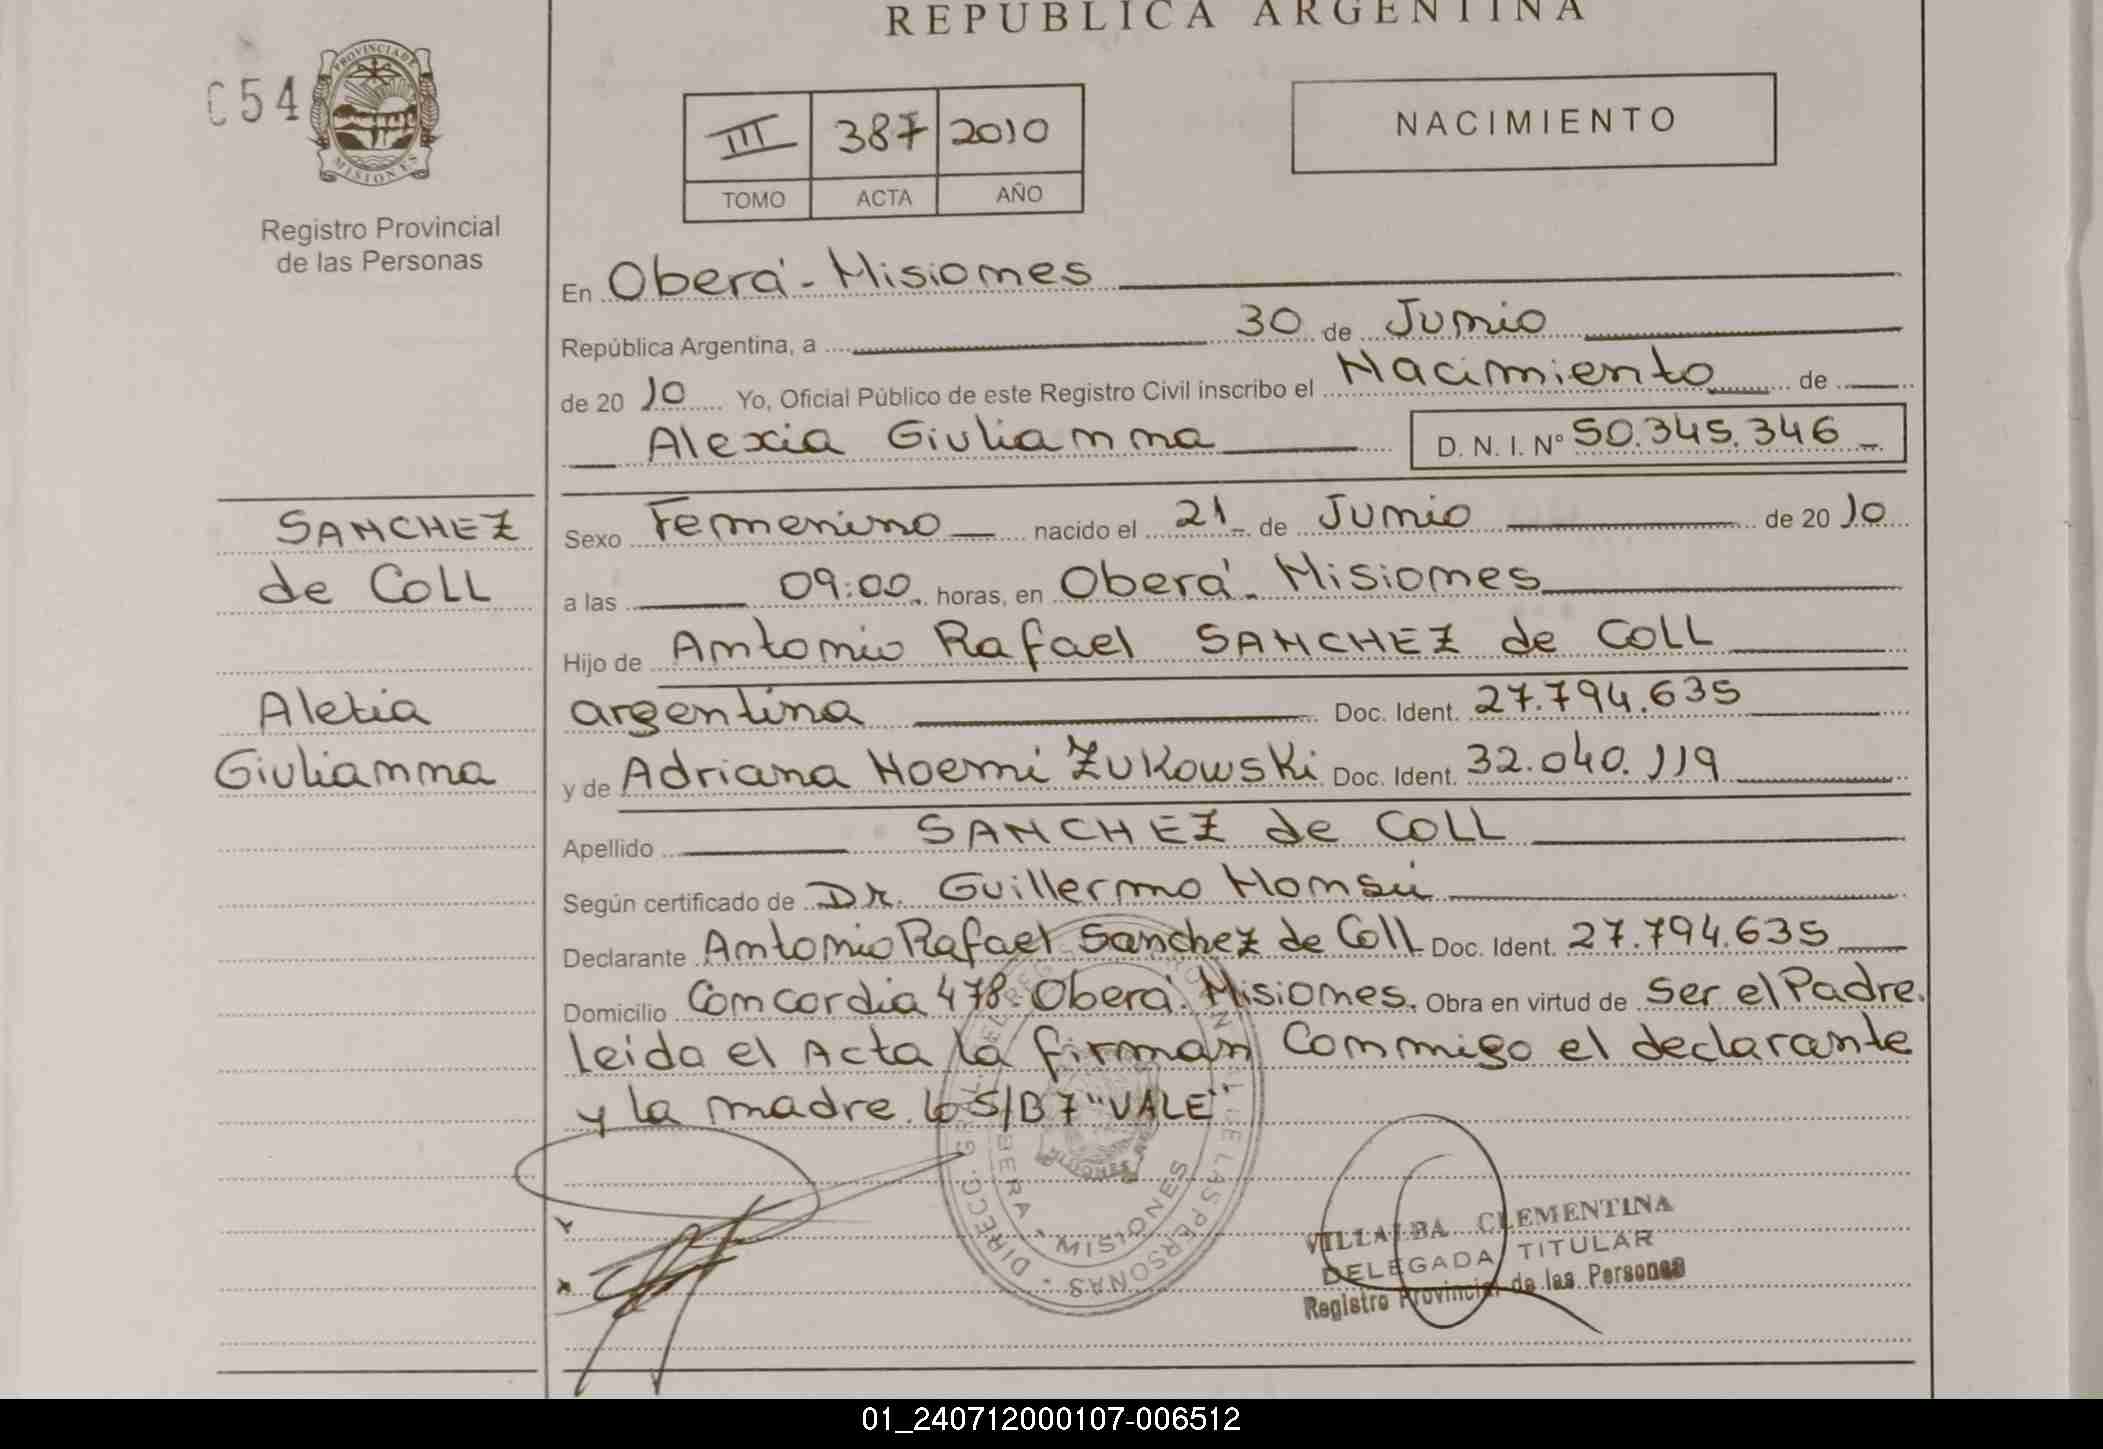 REPUBLICA ARGENTINA
C54
PROVINCIA DE
MISIONES
Registro Provincial
de las Personas
III 387 2010
TOMO ACTA AÑO
NACIMIENTO
En Oberá - Misiones
República Argentina, a 30 de Junio
de 20 10 Yo, Oficial Público de este Registro Civil inscribo el Nacimiento de
Alexia Giulianna D. N. I. Nº 50.345.346
SANCHEZ
de COLL
Aletia
Giulianna
Sexo Femenino nacido el 21 de Junio de 20 10
a las 09:00 horas, en Oberá - Misiones
Hijo de Antonio Rafael SANCHEZ de COLL
argentina Doc. Ident. 27.794.635
y de Adriana Noemi Zukowski Doc. Ident. 32.040.119
Apellido SANCHEZ de COLL
Según certificado de Dr. Guillermo
Declarante Antonio Rafael Sanchez de Coll Doc. Ident. 27.794.635
Domicilio Concordia 478. Oberá. Misiones. Obra en virtud de Ser el Padre.
leida el Acta la firman Conmigo el declarante
y la madre. lo S/B 7 "VALE"
VILLALBA CLEMENTINA
DELEGADA TITULAR
Registro Provincial de las Personas
MISIONES
01_240712000107-006512